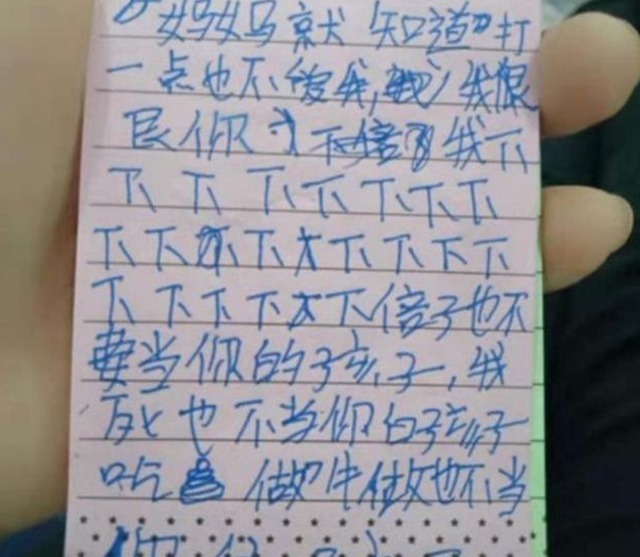 妈妈就知道打
一点也不爱我,我很
艮你 我下
下下下下下下下
下下下下下下下下
下下下下下下倍子也不
要当你的孩子,我
死也不当你的孩子
吃 做牛做也不当